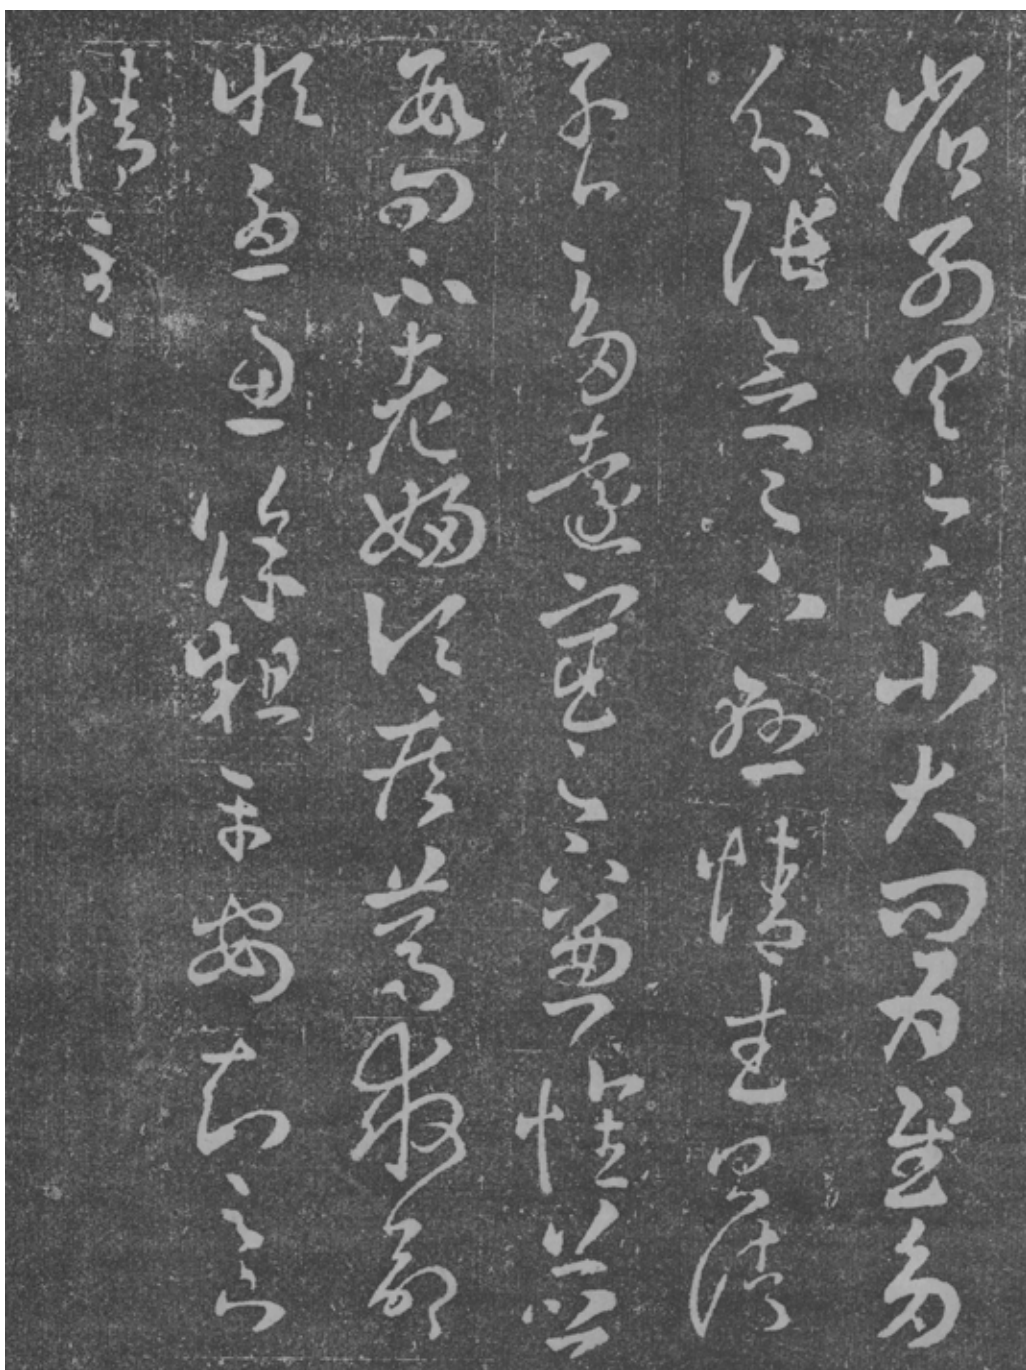 省別具足下小大問為慰多
分張念足下懸情武昌諸
子亦多遠宦足下兼懷並
數問不老婦頃疾篤救命
恒憂慮餘粗平安知足下
情至